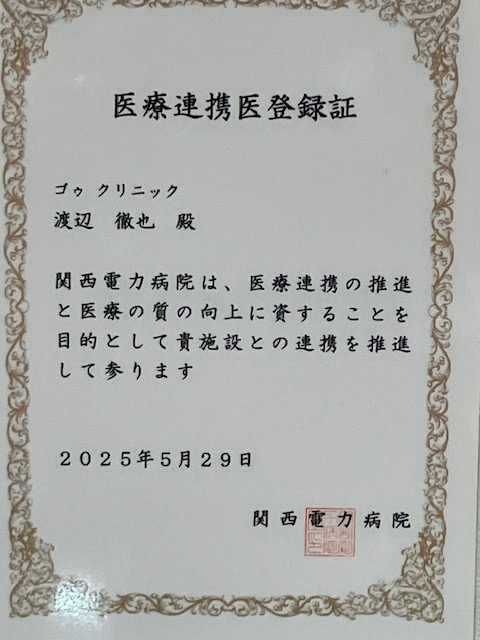 医療連携医登録証
ゴゥ クリニック
渡辺　徹也　殿
関西電力病院は、医療連携の推進
と医療の質の向上に資することを
目的として貴施設との連携を推進
して参ります
２０２５年５月２９日
関西電力病院